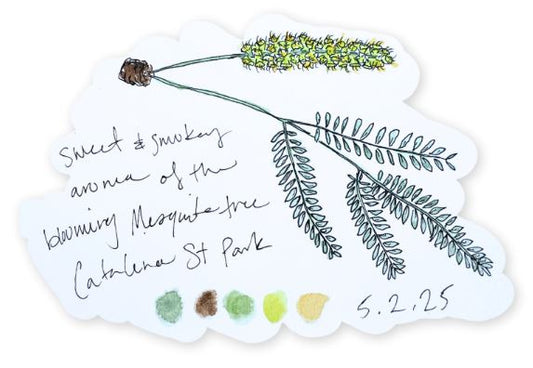 sweet & smokey
aroma of the
blooming Mesquite tree
Catalina St Park
5.2.25